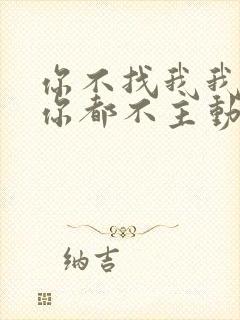 你不找我我
你都不主動
纳吉